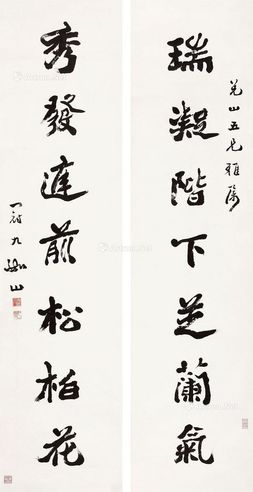 瑞凝階下芝蘭氣
五兄雅屬
秀發庭前松柏花
九
山